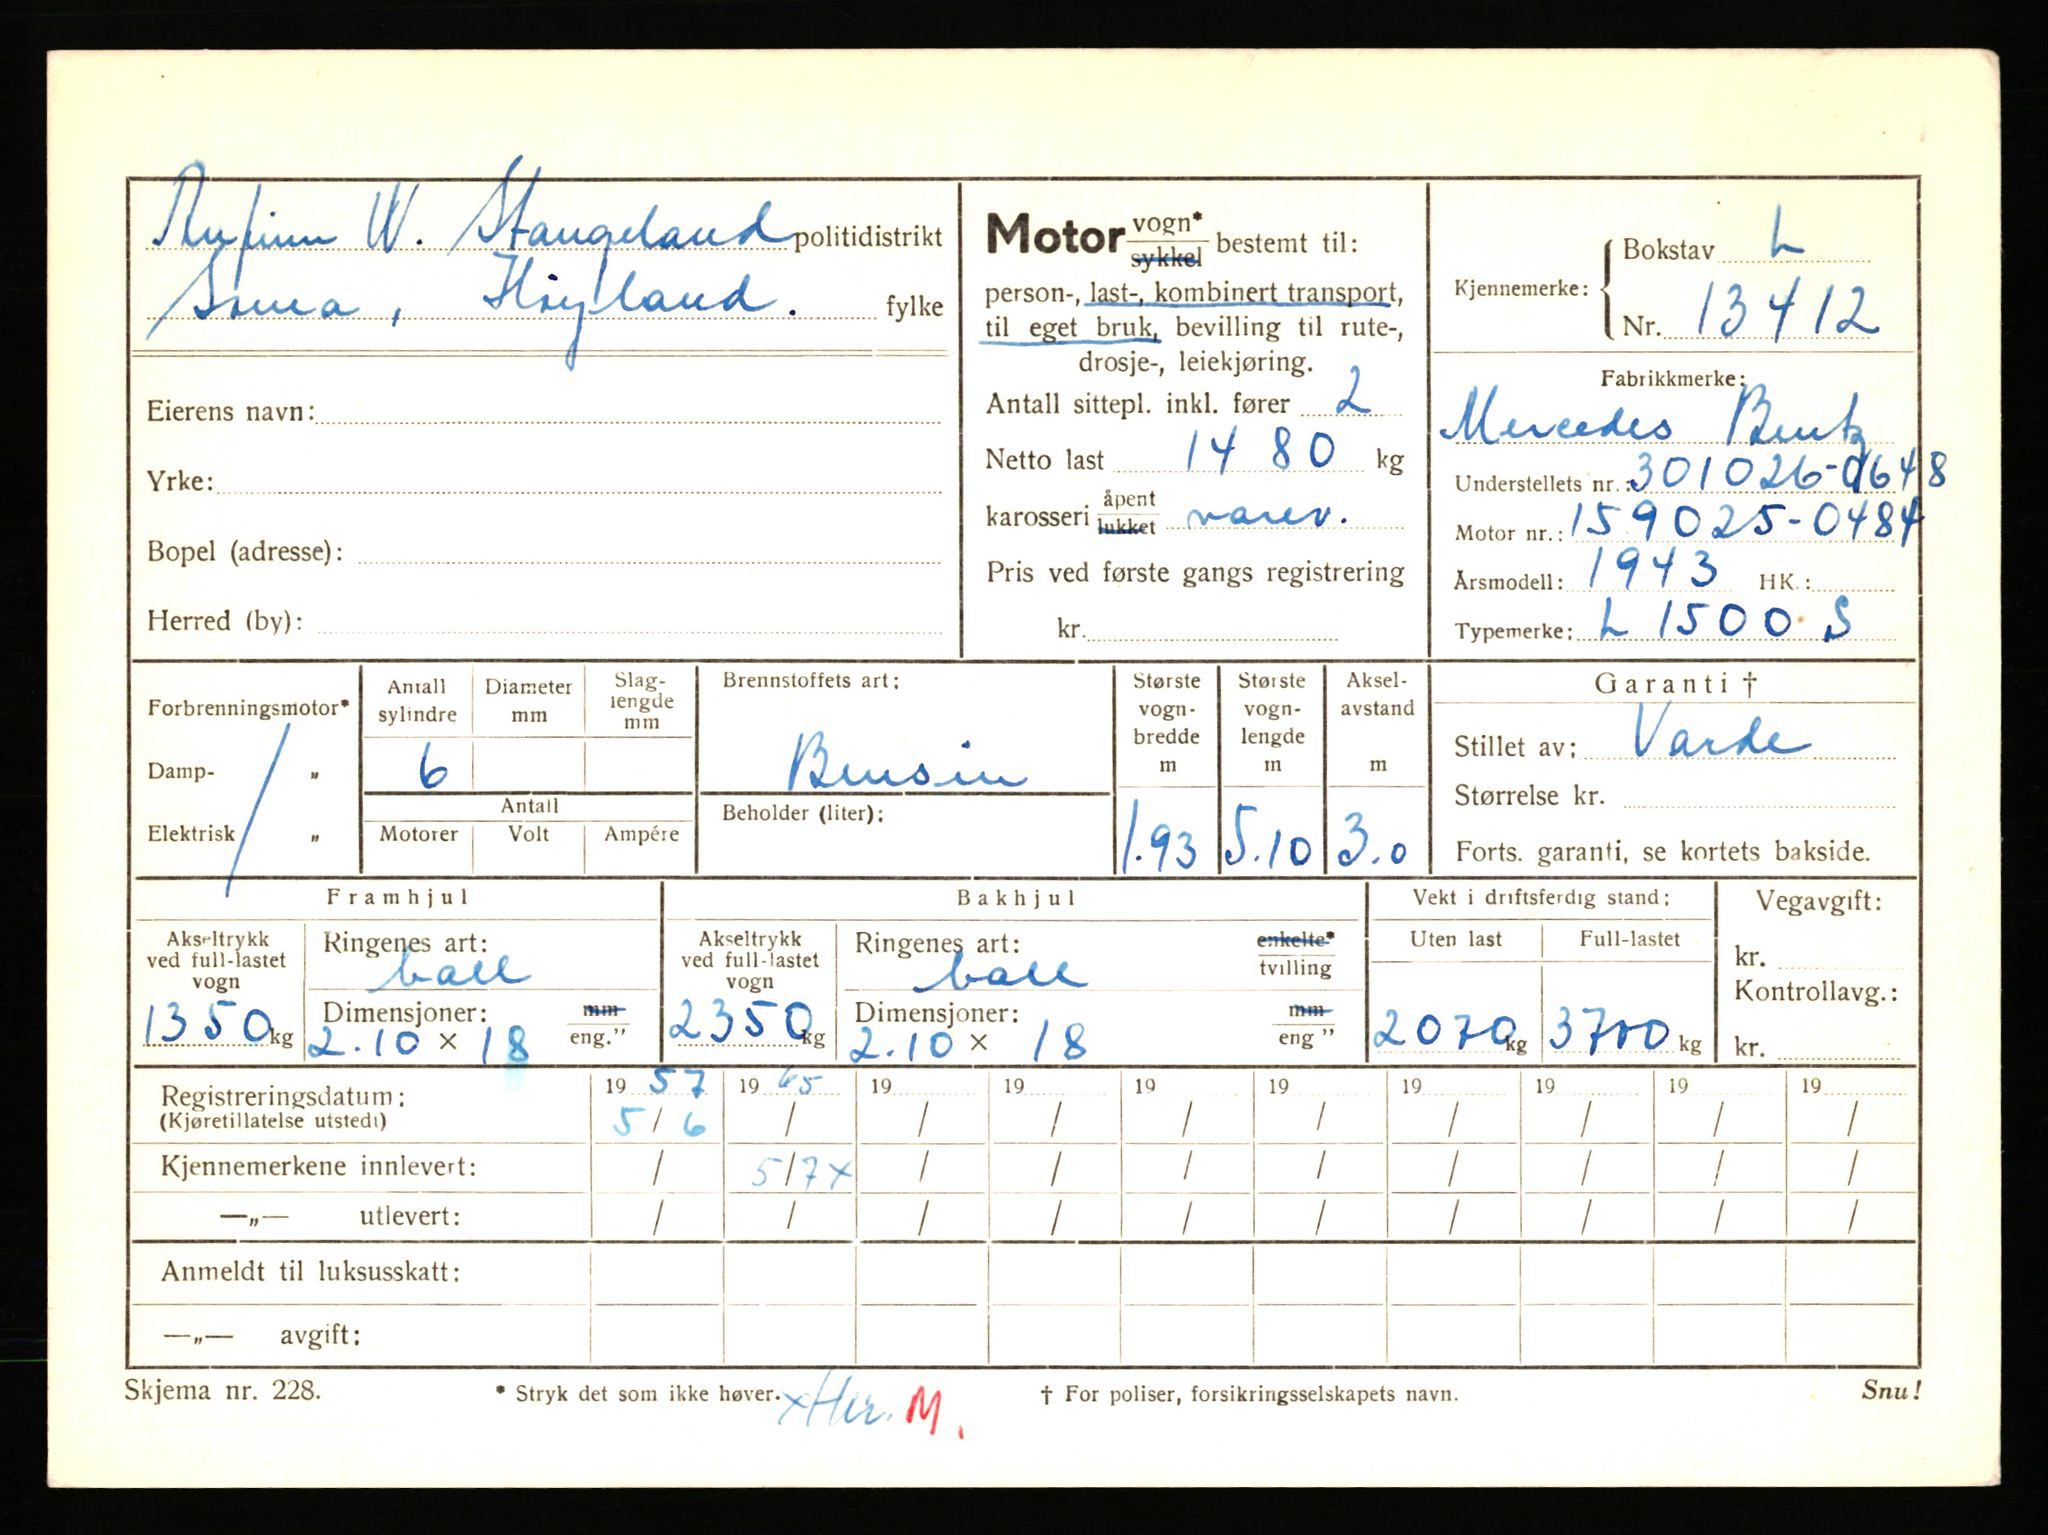 W. Stangeland politidistrikt
Soma, Høyland. fylke
Eierens navn:
Yrke:
Bopel (adresse):
Herred (by):
Motor vogn* sykkel bestemt til:
person-, last-, kombinert transport,
til eget bruk, bevilling til rute-,
drosje-, leiekjøring.
Antall sittepl. inkl. fører 2
Netto last 1480 kg
karosseri åpent lukket varev.
Pris ved første gangs registrering
kr.
Kjennemerke: Bokstav L
Nr. 13412
Fabrikkmerke:
Mercedes Bentz
Understellets nr.: 301026-0648
Motor nr.: 159025-0484
Årsmodell: 1943 HK.:
Typemerke: L 1500 S
Forbrenningsmotor*
Damp- „
Elektrisk „
Antall sylindre
Diameter mm
Slaglengde mm
6
Antall
Motorer Volt Ampére
Brennstoffets art:
Bensin
Beholder (liter):
Største vogn-bredde m
1.93
Største vogn-lengde m
5.10
Aksel-avstand m
3.0
Garanti †
Stillet av: Varde
Størrelse kr.
Forts. garanti, se kortets bakside.
Framhjul
Akseltrykk ved full-lastet vogn
1350 kg
Ringenes art:
ball
Dimensjoner: mm eng.”
2.10 x 18
Bakhjul
Akseltrykk ved full-lastet vogn
2350 kg
Ringenes art: enkelte* tvilling
ball
Dimensjoner: mm eng ”
2.10 x 18
Vekt i driftsferdig stand:
Uten last Full-lastet
2070 kg 3700 kg
Vegavgift:
kr.
Kontrollavg.:
kr.
Registreringsdatum: 19 57 19 65 19 19 19 19 19 19 19 19
(Kjøretillatelse utstedt) 5/6 / / / / / / / / /
Kjennemerkene innlevert: / 5/7 x / / / / / / / /
—„— utlevert: / / / / / / / / / /
Anmeldt til luksusskatt:
—„— avgift:
Skjema nr. 228. * Stryk det som ikke høver. x Her. M. † For poliser, forsikringsselskapets navn. Snu!